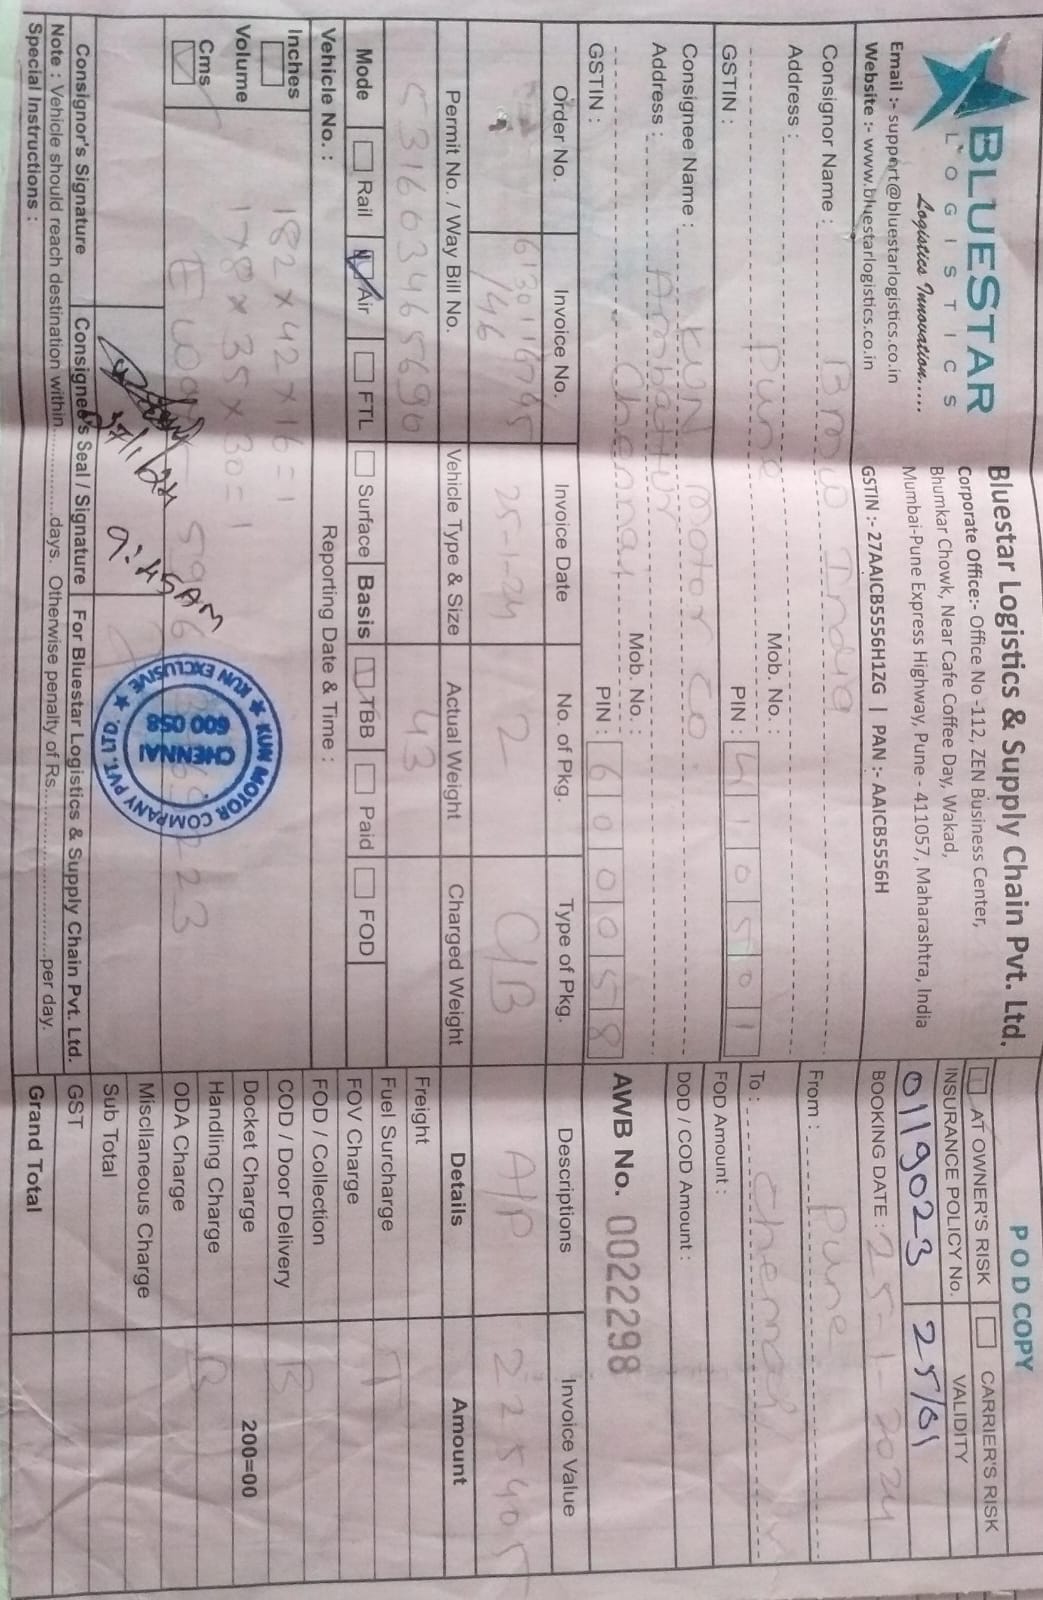 BLUESTAR
LOGISTICS
Logistics Innovation.....
Email :- support@bluestarlogistics.co.in
Website :- www.bluestarlogistics.co.in
Bluestar Logistics & Supply Chain Pvt. Ltd.
Corporate Office:- Office No -112, ZEN Business Center,
Bhumkar Chowk, Near Cafe Coffee Day, Wakad,
Mumbai-Pune Express Highway, Pune - 411057, Maharashtra, India
GSTIN :- 27AAICB5556H1ZG | PAN :- AAICB5556H
POD COPY
AT OWNER'S RISK CARRIER'S RISK
INSURANCE POLICY No. VALIDITY
0119023 25/01
BOOKING DATE : 25-1-2024
Consignor Name : BMW India
Address :
Pune Mob. No. :
GSTIN : PIN : 410501
From : Pune
To : Chennai
FOD Amount :
DOD / COD Amount :
Consignee Name : KUN Motor Co.
Address : Ambattur
Chennai Mob. No. :
GSTIN : PIN : 600058
AWB No. 0022298
Order No. Invoice No. Invoice Date No. of Pkg. Type of Pkg. Descriptions Invoice Value
6130116745 25-1-24 2 C/B A/P 225405
/46
Permit No. / Way Bill No. Vehicle Type & Size Actual Weight Charged Weight
531603465690 43
Mode Rail Air FTL Surface Basis TBB Paid FOD
Vehicle No. : Reporting Date & Time :
Inches
Volume
Cms
182 x 42 x 16 = 1
178 x 35 x 30 = 1
Details Amount
Freight
Fuel Surcharge T
FOV Charge
FOD / Collection
COD / Door Delivery B
Docket Charge 200=00
Handling Charge B
ODA Charge
Miscllaneous Charge
Sub Total
GST
Grand Total
27/1/24
9:45AM
KUN MOTOR COMPANY PVT. LTD.
KUN EXCLUSIVE
CHENNAI
600 058
Consignor's Signature Consignee's Seal / Signature For Bluestar Logistics & Supply Chain Pvt. Ltd.
Note : Vehicle should reach destination within..................days. Otherwise penalty of Rs.................................per day.
Special Instructions :